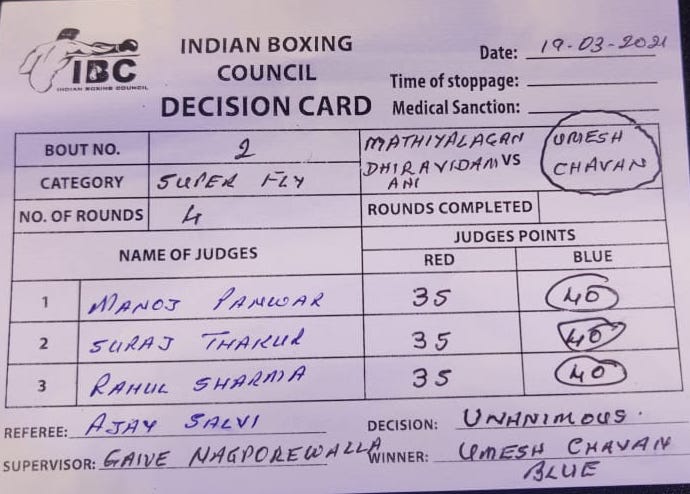 IBC
INDIAN BOXING COUNCIL
INDIAN BOXING
COUNCIL
DECISION CARD
Date: 19-03-2021
Time of stoppage:
Medical Sanction:
BOUT NO. 2
CATEGORY SUPER FLY
NO. OF ROUNDS 4
MATHIYALAGAN
DHIRAVIDAM VS
ANI
UMESH
CHAVAN
ROUNDS COMPLETED
NAME OF JUDGES
JUDGES POINTS
RED BLUE
1 MANOJ PANWAR 35 40
2 SURAJ THAKUR 35 40
3 RAHUL SHARMA 35 40
REFEREE: AJAY SALVI
DECISION: UNANIMOUS.
SUPERVISOR: GAIVE NAGPOREWALLA
WINNER: UMESH CHAVAN
BLUE